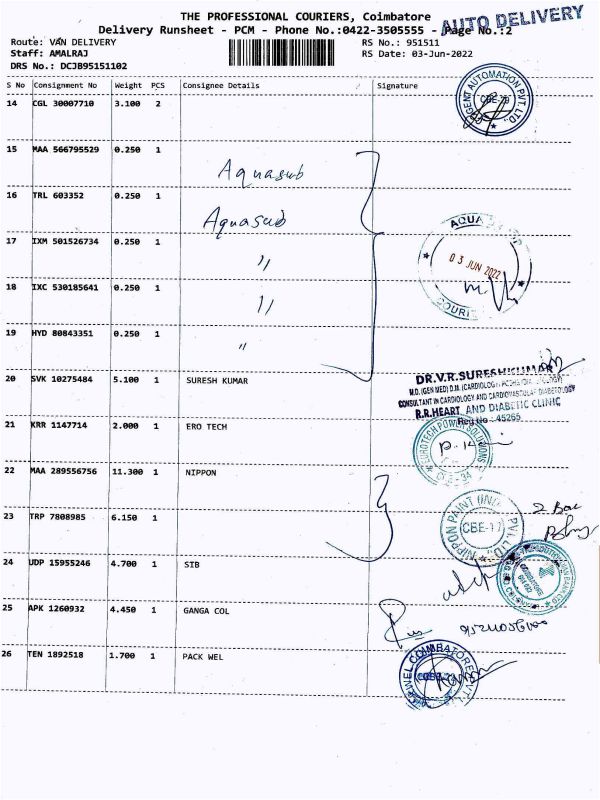 THE PROFESSIONAL COURIERS, Coimbatore
Delivery Runsheet - PCM - Phone No.:0422-3505555 - Page No.:2
AUTO DELIVERY
Route: VAN DELIVERY RS No.: 951511
Staff: AMALRAJ RS Date: 03-Jun-2022
DRS No.: DCJB95151102
S No Consignment No Weight PCS Consignee Details Signature
14 CGL 30007710 3.100 2
AGENT AUTOMATION PVT. LTD.
15 MAA 566795529 0.250 1 Aquasub
16 TRL 603352 0.250 1 Aquasub
17 IXM 501526734 0.250 1 "
AQUA
03 JUN 2022
18 IXC 530185641 0.250 1 "
19 HYD 80843351 0.250 1 "
20 SVK 10275484 5.100 1 SURESH KUMAR
DR.V.R.SURESHKUMAR
CONSULTANT IN CARDIOLOGY AND CARDIOVASCULAR DIABETOLOGY
R.R.HEART AND DIABETIC CLINIC
Reg.No.:45265
21 KRR 1147714 2.000 1 ERO TECH
EUROTECH POWER SOLUTIONS
22 MAA 289556756 11.300 1 NIPPON
NIPPON PAINT (IND PVT. LTD.
CBE-17
23 TRP 7808985 6.150 1
24 UDP 15955246 4.700 1 SIB
25 APK 1260932 4.450 1 GANGA COL
26 TEN 1892518 1.700 1 PACK WEL
COIMBATORE